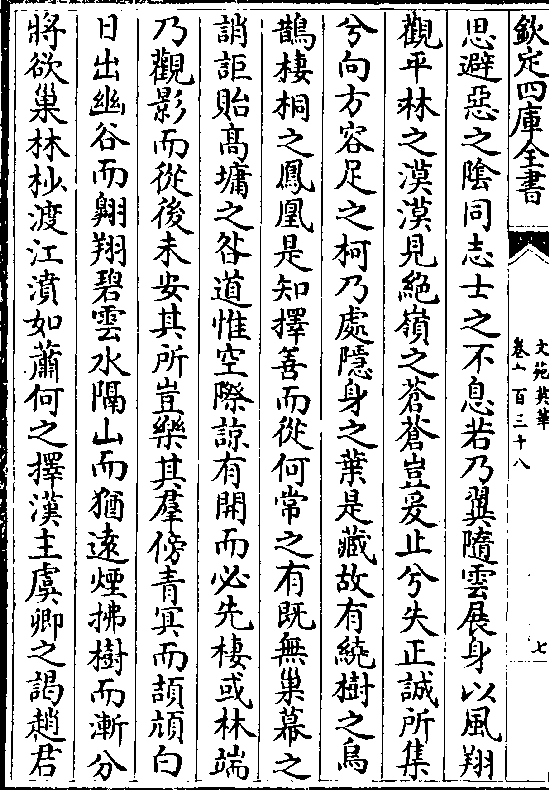 欽定四庫全書
文苑英華
卷一百三十八
七
思避惡之陰同志士之不息若乃翼隨雲展身以風翔
觀平林之漠漠見絶嶺之蒼蒼豈爰止兮失正誠所集
兮向方容足之柯乃處隱身之葉是藏故有繞樹之烏
鵲棲桐之鳳凰是知擇善而從何常之有既無巢幕之
誚詎貽髙墉之咎道惟空際諒有開而必先棲或林端
乃觀影而從後未安其所豈樂其羣傍青冥而頡頏白
日出幽谷而翺翔碧雲水隔山而猶遠煙拂樹而漸分
將欲巢林杪渡江濆如蕭何之擇漢主虞卿之謁趙君